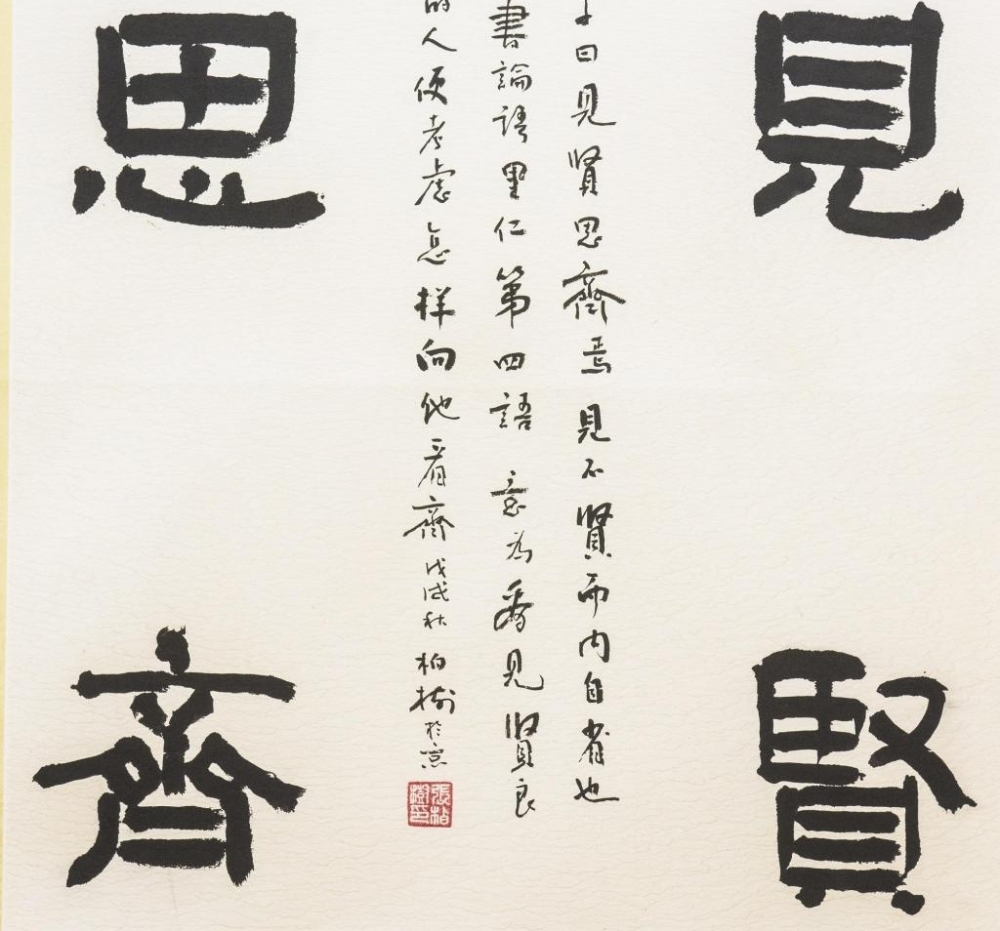 見賢
曰見賢思齊焉見不賢而内自省也
書論語里仁第四語意为看見贤良
的人便考虑怎样向他看齊戊戌秋柏树於京
思齊
張柏樹印